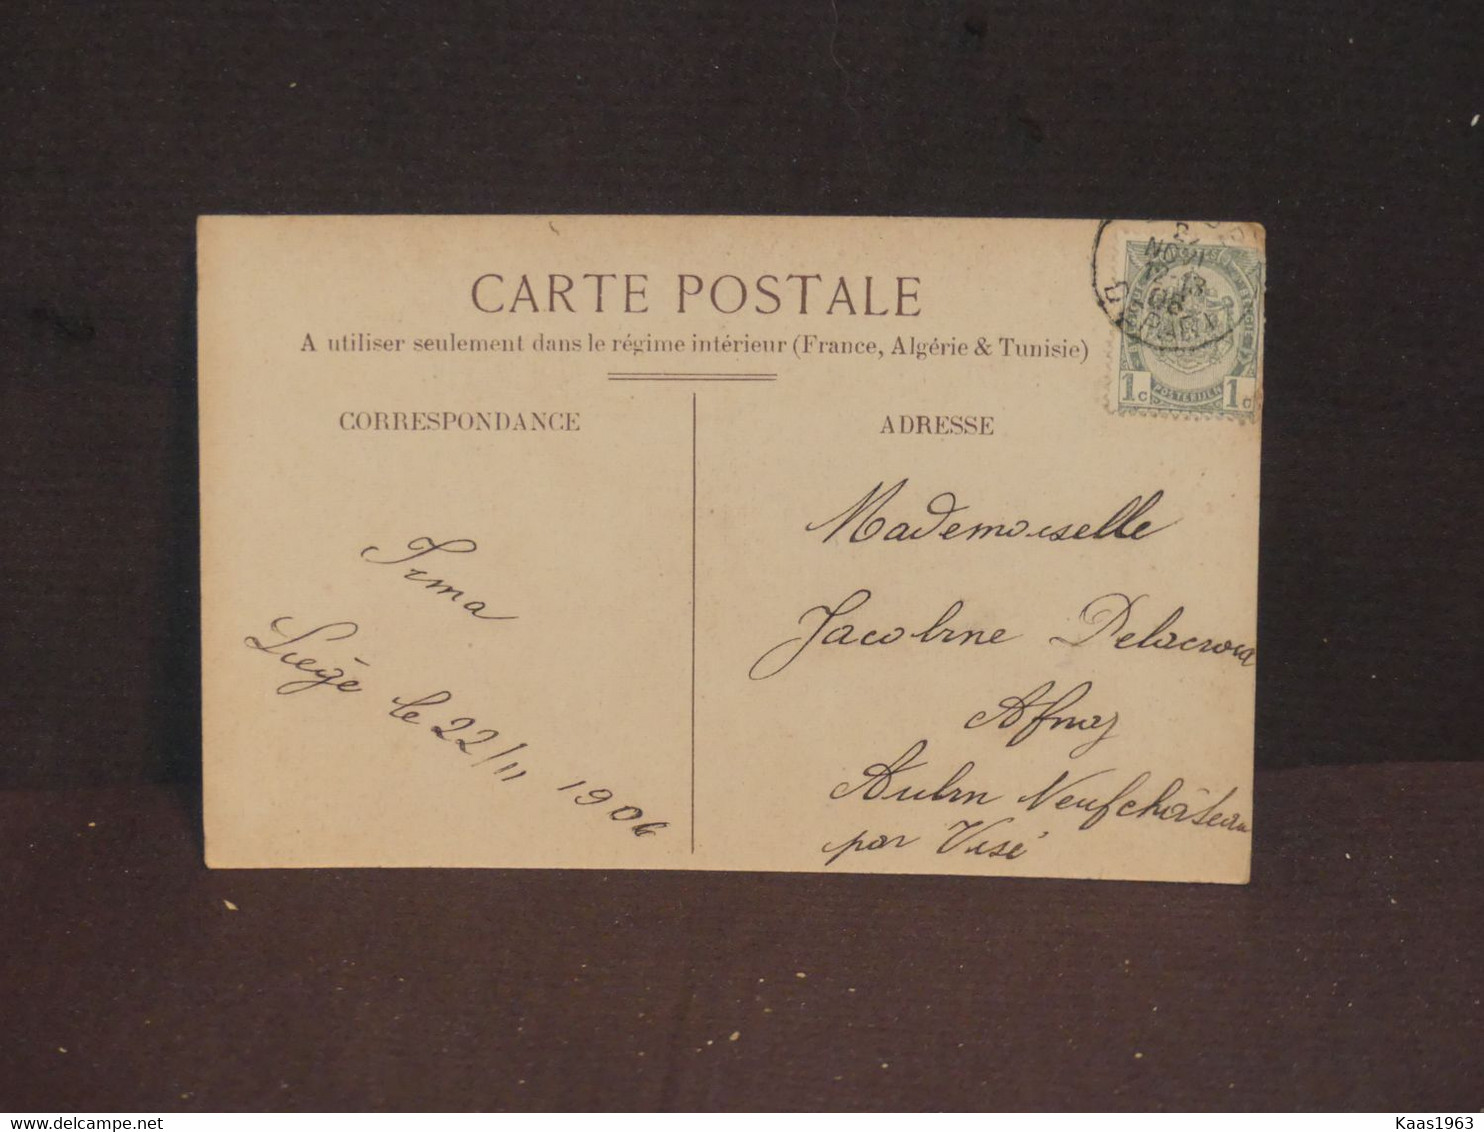 CARTE POSTALE
A utiliser seulement dans le régime intérieur (France, Algérie & Tunisie)
CORRESPONDANCE
Irma
Liège le 22/11 1906
ADRESSE
Mademoiselle
Jacobine Delacroix
Afnay
Aubin Neufchâteau
par Visé
NOV
06
1c POSTERIJEN 1c
delcampe.net
Kaas1963